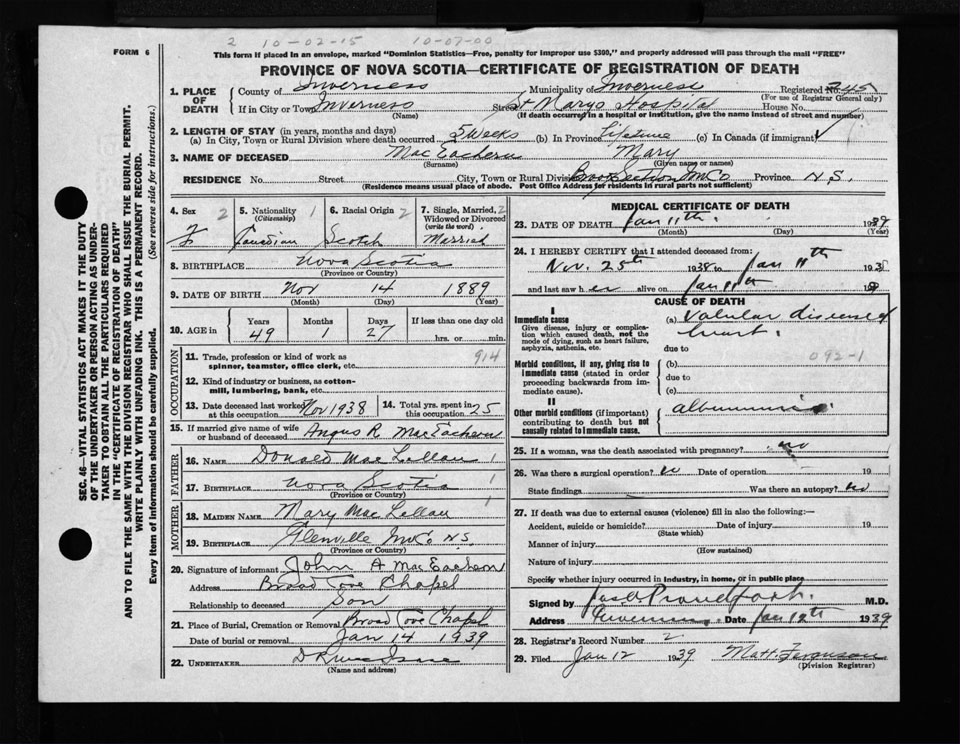 2 10-02-15 10-07-00
FORM 6
This form if placed in an envelope, marked "Dominion Statistics—Free, penalty for improper use $300," and properly addressed will pass through the mail "FREE"
PROVINCE OF NOVA SCOTIA—CERTIFICATE OF REGISTRATION OF DEATH
1. PLACE OF DEATH
County of Inverness Municipality of Inverness Registered No.
(For use of Registrar General only)
If in City or Town Inverness Street St Marys Hospital House No.
(Name) (If death occurred in a hospital or institution, give the name instead of street and number)
2. LENGTH OF STAY (in years, months and days)
(a) In City, Town or Rural Division where death occurred 5 Weeks (b) In Province Lifetime (c) In Canada (if immigrant)
3. NAME OF DECEASED MacEachern Mary
(Surname) (Given name or names)
RESIDENCE No. Street City, Town or Rural Division Section Inv Co Province N.S.
(Residence means usual place of abode. Post Office Address for residents in rural parts not sufficient)
4. Sex 2 F
5. Nationality 1 (Citizenship) Canadian
6. Racial Origin 2 Scotch
7. Single, Married, 2 Widowed or Divorced (write the word) Married
8. BIRTHPLACE Nova Scotia
(Province or Country)
9. DATE OF BIRTH Nov 14 1889
(Month) (Day) (Year)
10. AGE in Years 49 Months 1 Days 27 If less than one day old hrs. or min.
OCCUPATION
11. Trade, profession or kind of work as spinner, teamster, office clerk, etc. 914
12. Kind of industry or business, as cotton-mill, lumbering, bank, etc.
13. Date deceased last worked at this occupation Nov 1938
14. Total yrs. spent in this occupation 25
15. If married give name of wife or husband of deceased Angus R MacEachern
FATHER
16. NAME Donald MacLellan 1
17. BIRTHPLACE Nova Scotia 1
(Province or Country)
MOTHER
18. MAIDEN NAME Mary MacLellan
19. BIRTHPLACE Glenville Inv Co N.S.
(Province or Country)
20. Signature of informant John A MacEachern
Address Broad Cove Chapel
Relationship to deceased Son
21. Place of Burial, Cremation or Removal Broad Cove Chapel
Date of burial or removal Jan 14 1939
22. UNDERTAKER
(Name and address)
MEDICAL CERTIFICATE OF DEATH
23. DATE OF DEATH Jan 11th 1939
(Month) (Day) (Year)
24. I HEREBY CERTIFY that I attended deceased from:
Nov. 25th 1938 to Jan 11th 193
and last saw her alive on Jan 11th 19
CAUSE OF DEATH
I
Immediate cause
Give disease, injury or complication which caused death, not the mode of dying, such as heart failure, asphyxia, asthenia, etc.
(a) Valvular disease of heart.
due to
092-1
Morbid conditions, if any, giving rise to immediate cause (stated in order proceeding backwards from immediate cause).
(b)
due to
(c)
II
Other morbid conditions (if important) contributing to death but not causally related to immediate cause.
albuminuria
25. If a woman, was the death associated with pregnancy? no
26. Was there a surgical operation? no Date of operation 19
State findings Was there an autopsy? no
27. If death was due to external causes (violence) fill in also the following:—
Accident, suicide or homicide? Date of injury 19
(State which)
Manner of injury
(How sustained)
Nature of injury
Specify whether injury occurred in industry, in home, or in public place
Signed by Proudfoot. M.D.
Address Inverness Date Jan 12th 1939
28. Registrar's Record Number 2
29. Filed Jan 12 1939 Matt. Ferguson
(Division Registrar)
SEC. 46—VITAL STATISTICS ACT MAKES IT THE DUTY
OF THE UNDERTAKER OR PERSON ACTING AS UNDER-
TAKER TO OBTAIN ALL THE PARTICULARS REQUIRED
IN THE "CERTIFICATE OF REGISTRATION OF DEATH"
AND TO FILE THE SAME WITH THE DIVISION REGISTRAR WHO SHALL ISSUE THE BURIAL PERMIT.
WRITE PLAINLY WITH UNFADING INK. THIS IS A PERMANENT RECORD.
Every item of information should be carefully supplied. (See reverse side for instructions.)